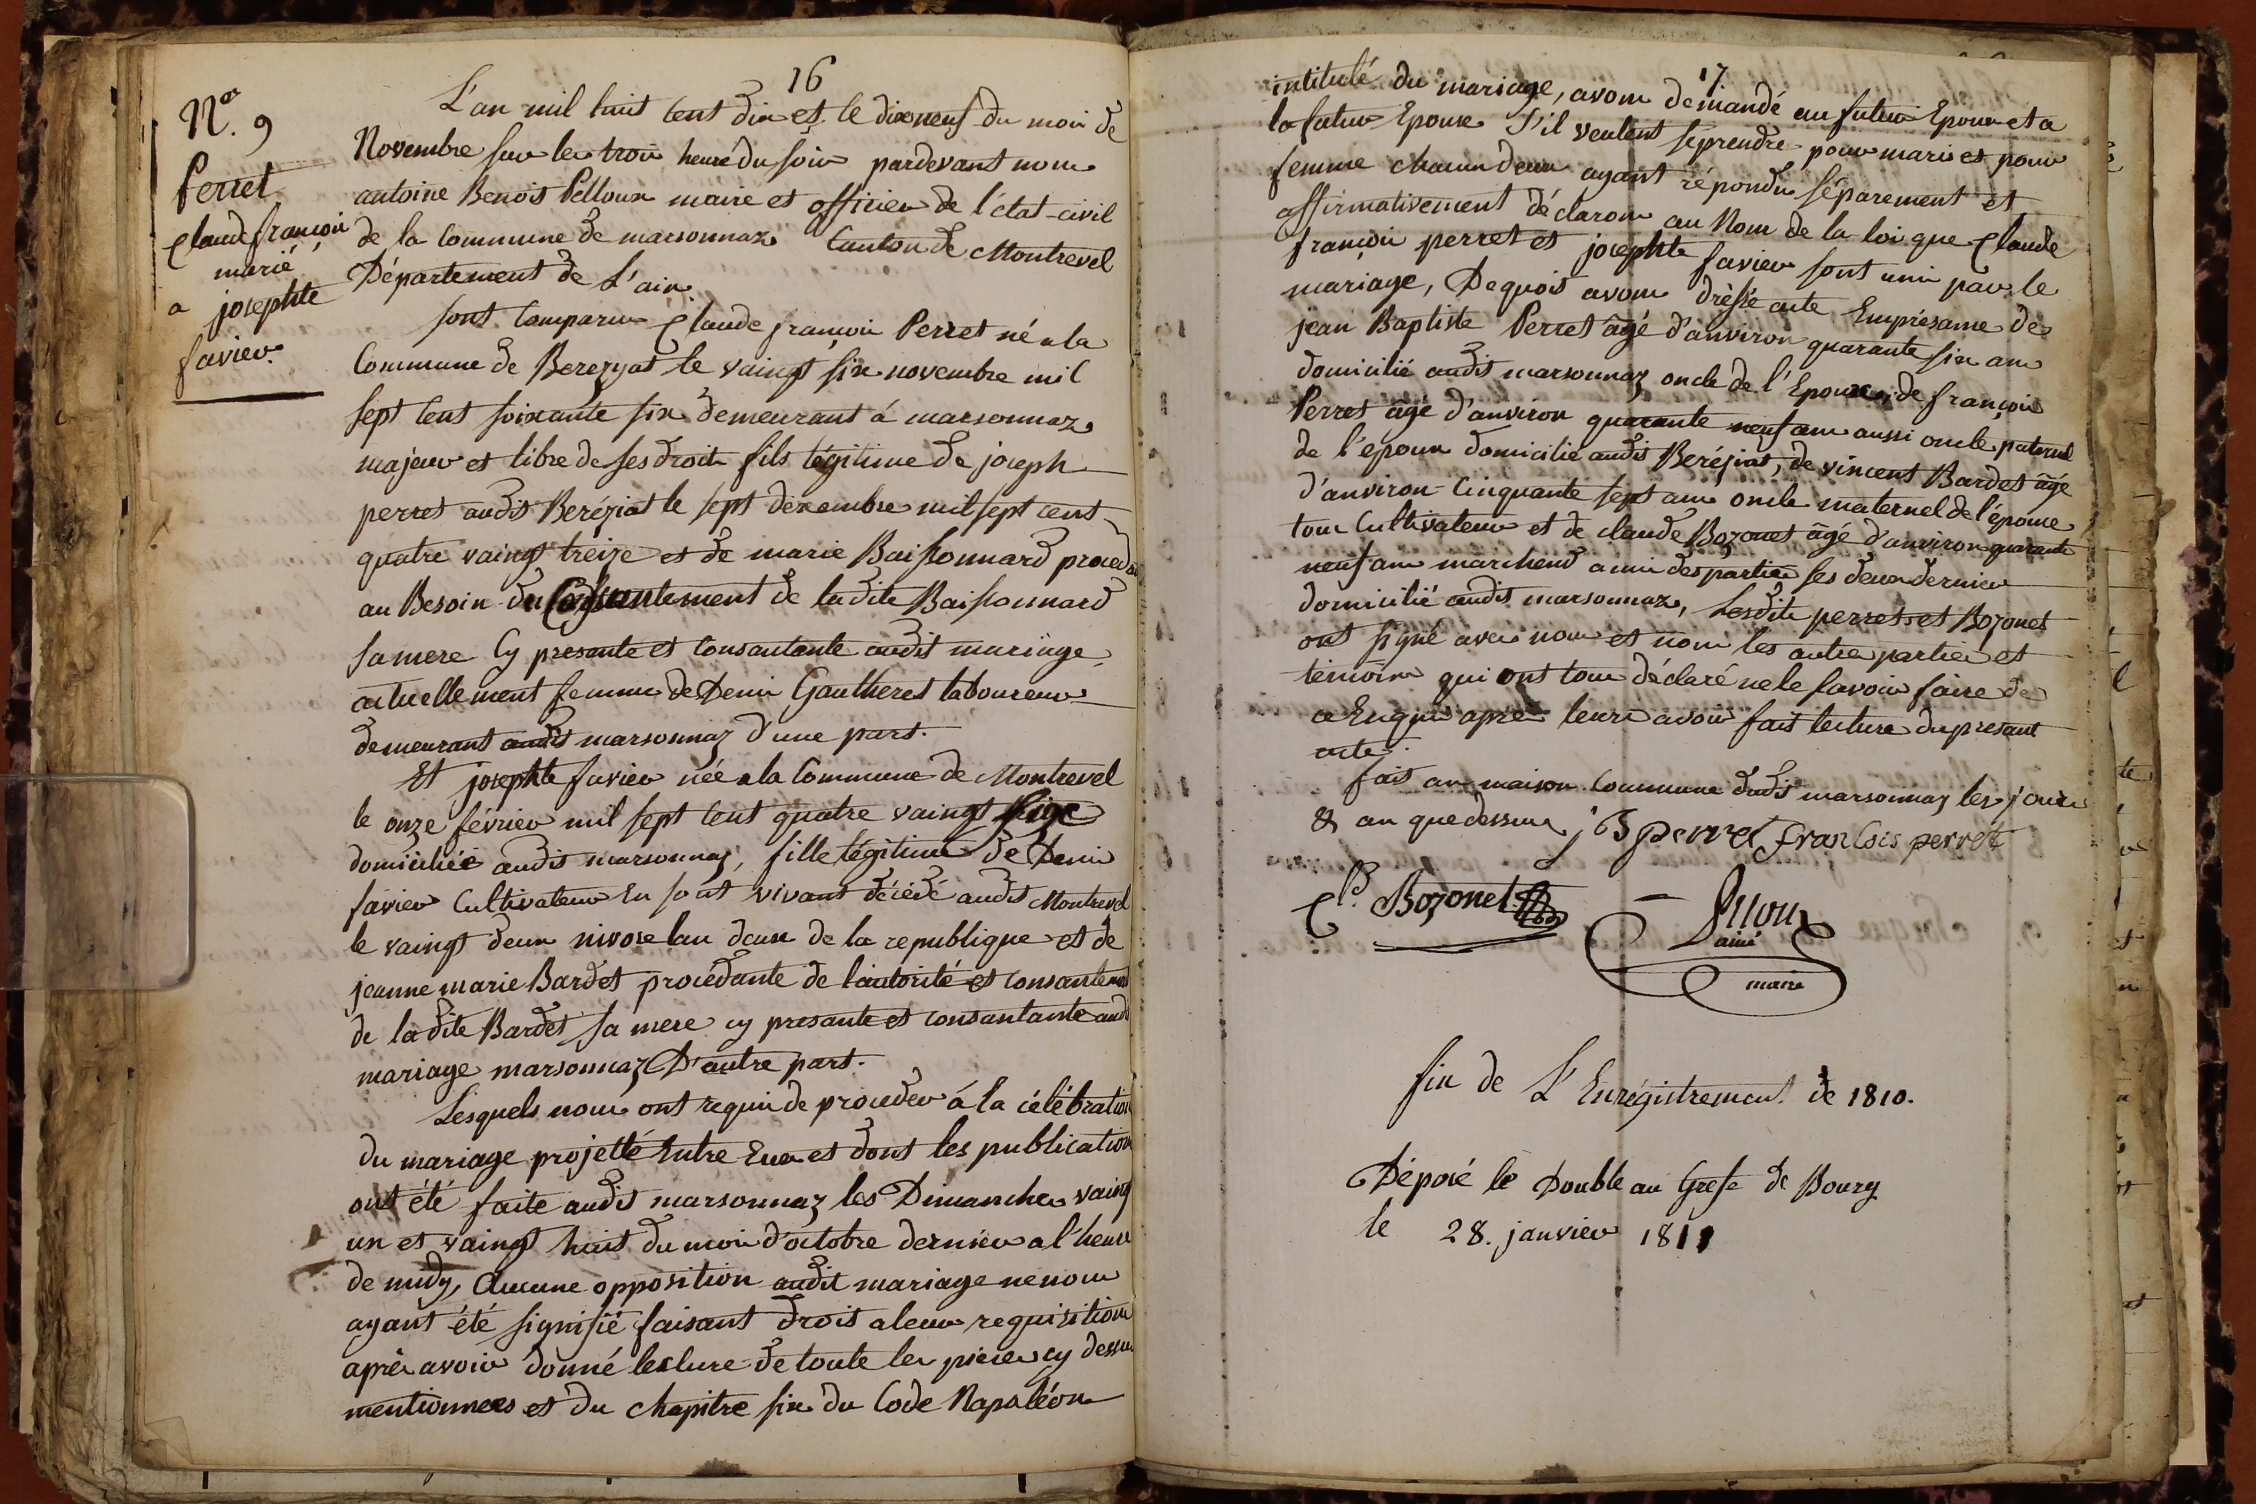 16
No. 9
Perret
Claude françois
marié
a josephte
favier.
L'an mil huit cent dix et le dixneuf du mois de
Novembre sur les trois heure du soir pardevant nous
antoine Benois Pelloux maire et officier de l'état-civil
de la Commune de marsonnaz Canton de Montrevel
Département de L'ain.
sont Comparus Claude françois Perret né a la
Commune de Berezyat le vaingt six novembre mil
sept cent soixante six demeurant á marsonnaz
majeur et libre de ses droits fils légitime de joseph
perret audit Beréziat le sept dexembre mil sept cent
quatre vaingt treize et de marie Baissonnard procedant
au Besoin du Consentement de ladite Baissonnard
sa mere Cy presante et Consantante audit mariage
actuellement femme de Denis Gautheret laboureur
demeurant audit marsonnaz d'une part.
Et josephte favier née a la Commune de Montrevel
le onze février mil sept cent quatre vaingt seize
domiciliée audit marsonnaz, fille légitime de Denis
favier Cultivateur En son vivant décédé audit Montrevel
le vaingt deux nivose lan deux de la republique et de
jeanne marie Bardet procédante de l'autorité et consantement
de ladite Bardet sa mere cy presante et consantante audit
mariage marsonnaz D'autre part.
Lesquels nous ont requis de proceder á la célébration
du mariage projetté Entre Eux et dont les publications
ont été faite audit marsonnaz les Dimanches vaingt
un et vaingt huit du mois d'octobre dernier a l'heure
de midy, Aucune opposition audit mariage ne nous
ayant été signifié faisant droit a leur requisition
après avoir donné leclure de toute les pieces cy dessus
mentionnees et du chapitre six du Code Napoléon
17
intitulé du mariage, avons demandé au futur Epoux et a
la futur Epouse S'il veulent se prendre pour maris et pour
femme chacun deux ayant répondu séparement et
affirmativement déclarons au Nom de la loi que Claude
françois perret et josephte favier sont unis par le
mariage, De quois avons dressé acte Emprésance de
jean Baptiste Perret âgé d'anviron quarante six ans
domicilié audit marsonnaz oncle de l'Epoux, de françois
Perret âgé d'anviron quarante neuf ans aussi oncle paternel
de l'époux domicilié audit Beréziat, de vincent Bardet âgé
d'anviron Cinquante sept ans oncle maternel de l'épouse
tous Cultivateur et de claude Bozonet âgé d'anviron quarante
neuf ans marchend amis des parties les deux dernier
domicilié audit marsonnaz, Lesdits perret et Bozonet
ont signé avec nous et non les autres parties et
témoins qui ont tous déclaré ne le savoir faire de
ce Enquis apres leurs avoir fait lecture du présant
acte.
fait an maison Commune dudit marsonnaz les jours
& an que dessus j B perret franCois perret
Cl.d Bozonet
Pelloux
ainé
maire
fin de L'Enrégistrement de 1810.
Déposé le Double au Grefe de Bourg
le 28. janvier 1811